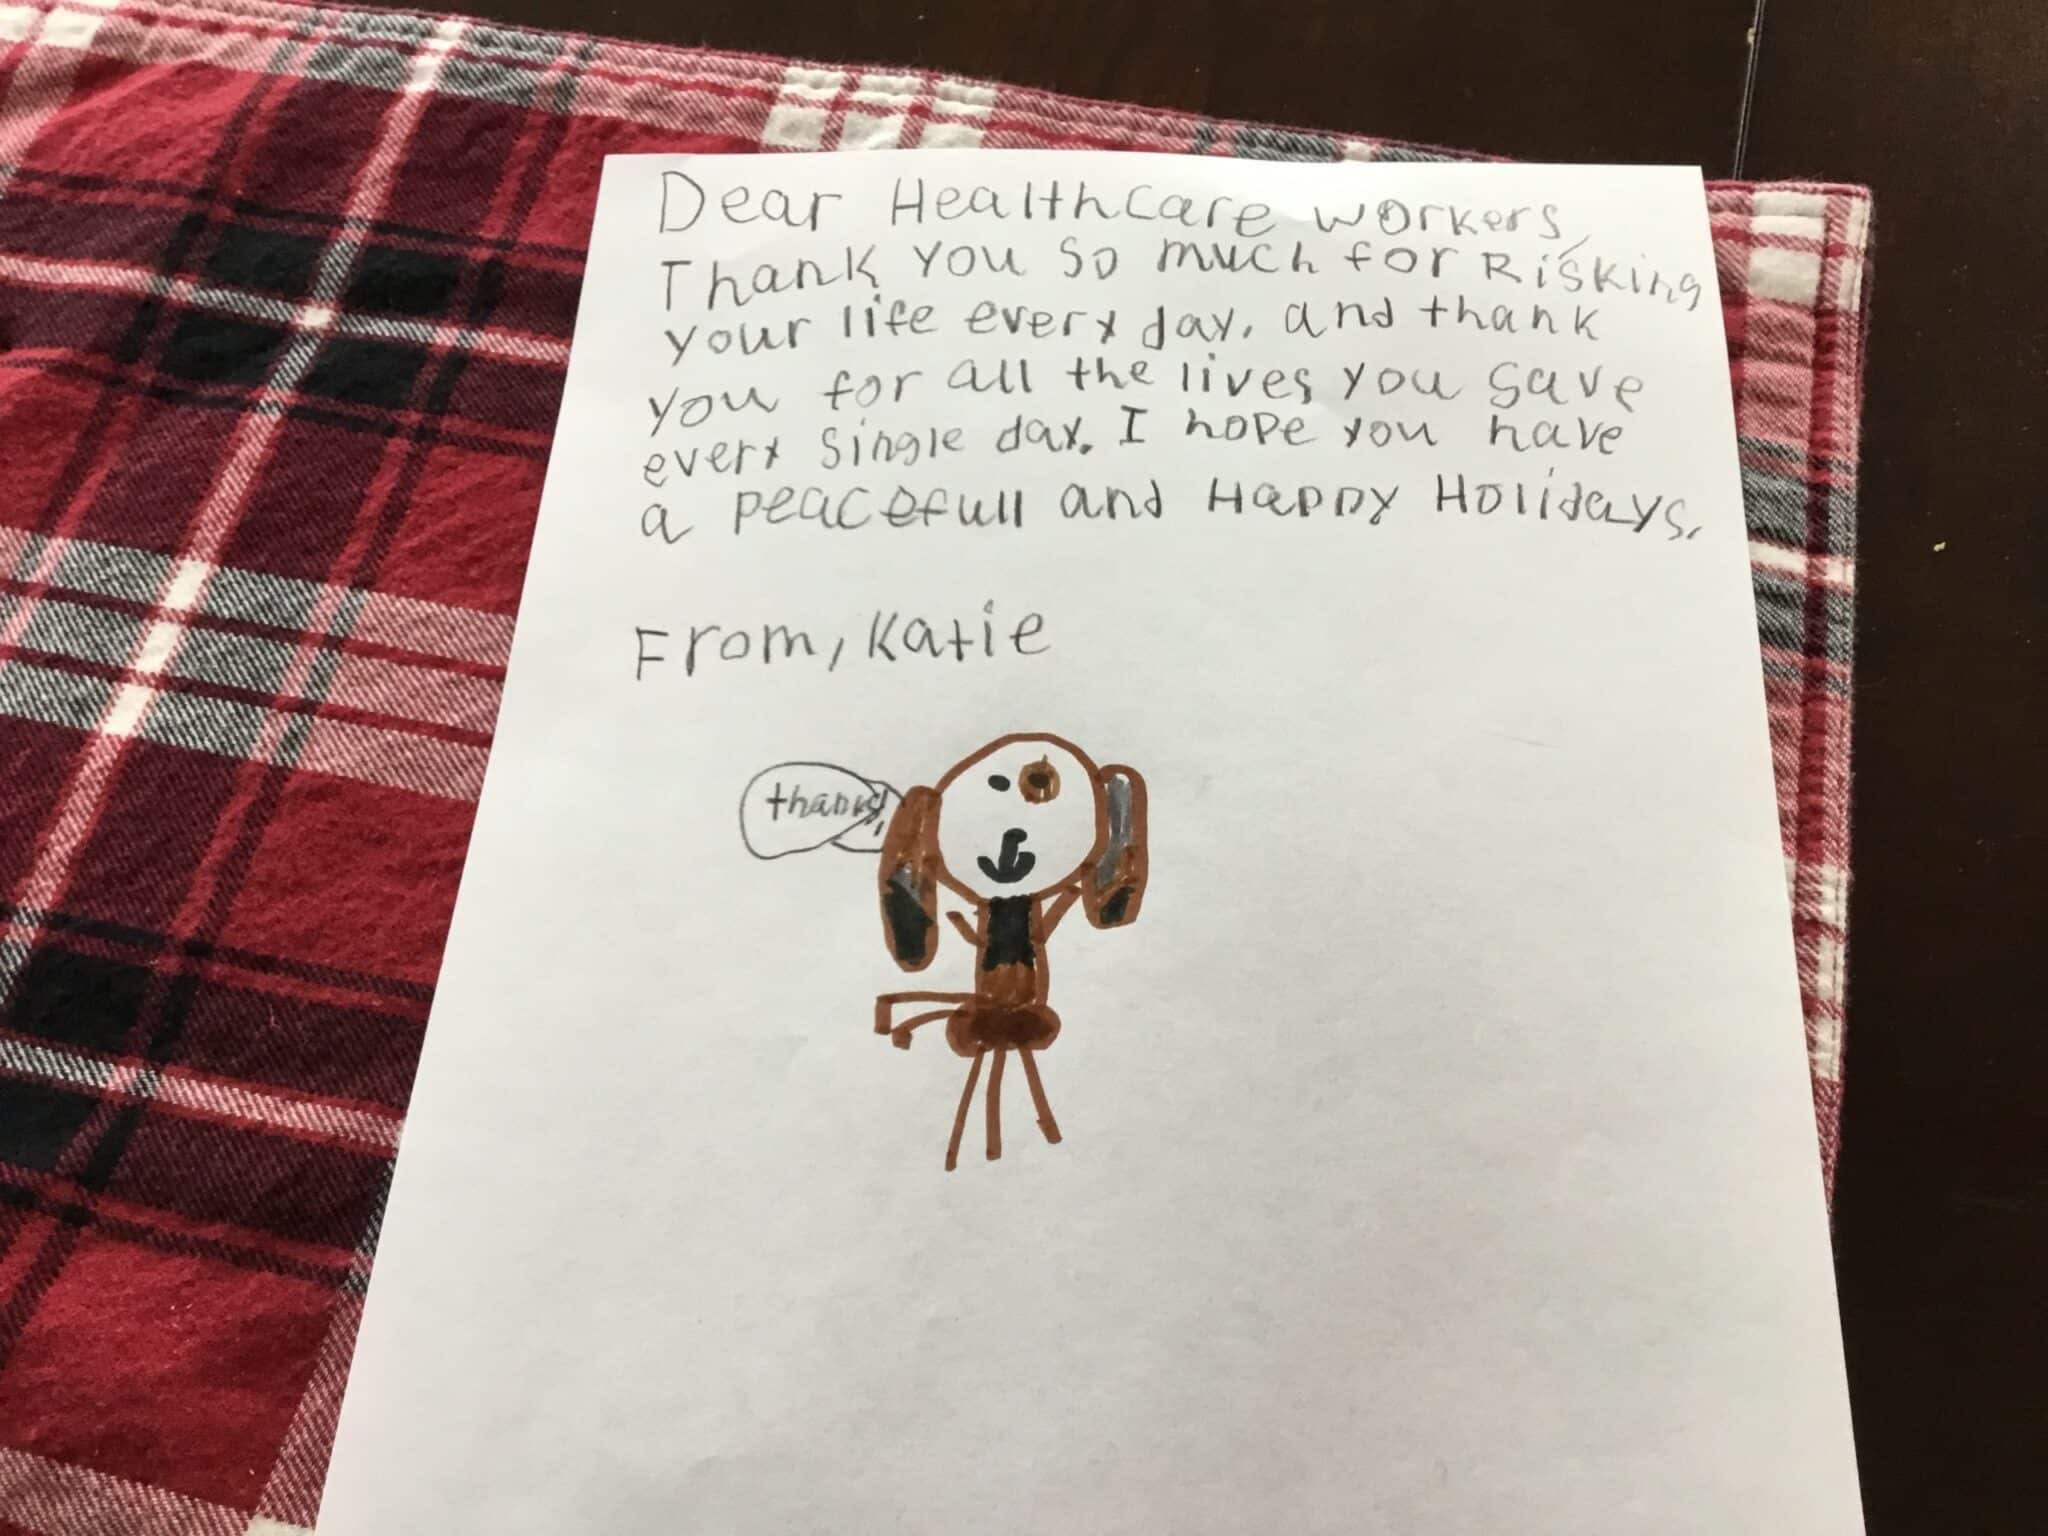 Dear Healthcare workers,
Thank you so much for Risking
your life every day. and thank
you for all the lives you save
every single day. I hope you have
a peacefull and Happy Holidays.
From, Katie
thanks!